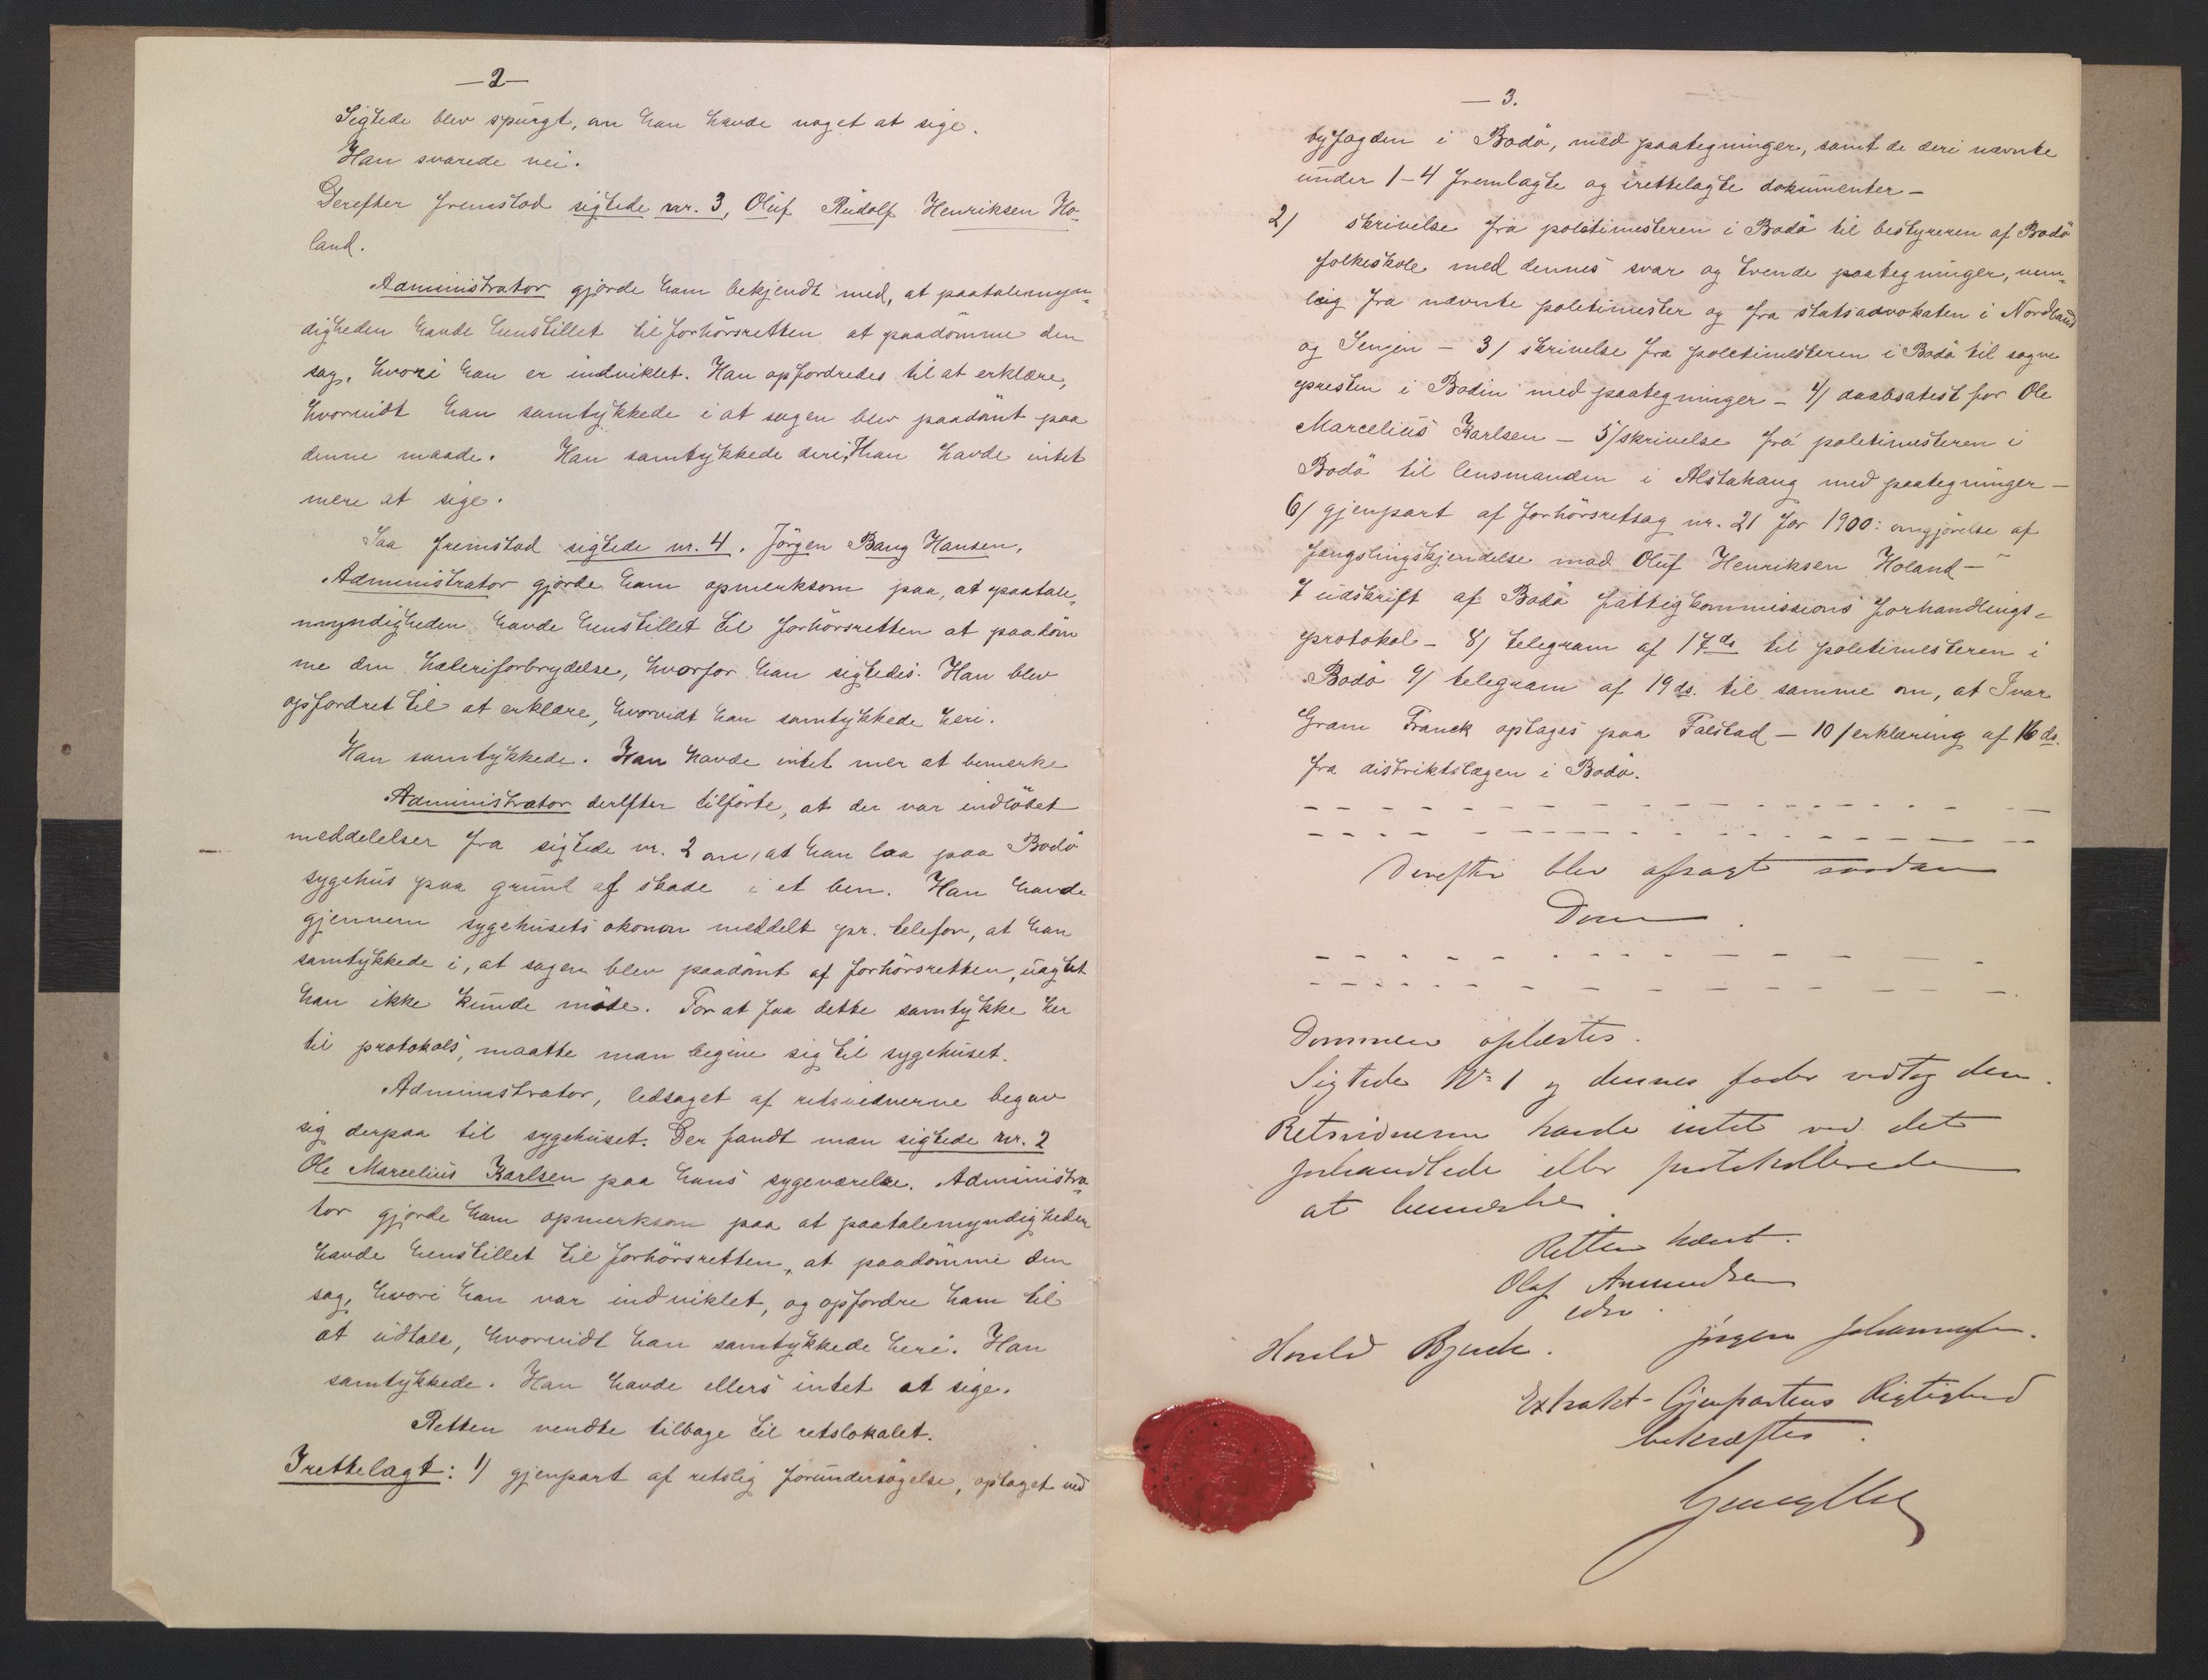 —2—
Sigtede blev spurgt, om han havde noget at sige.
Han svarede nei.
Derefter fremstod sigtede nr. 3, Oluf Rudolf Henriksen Ho-
land.
Administrator gjorde ham bekjendt med, at paatalemyn-
digheden havde henstillet til forhörsretten at paadömme den
sag, hvori han er indviklet. Han opfordredes til at erklære,
hvorvidt han samtykkede i at sagen blev paadömt paa
denne maade. Han samtykkede deri, Han havde intet
mere at sige.
Saa fremstod sigtede nr. 4, Jörgen Bang Hansen.
Administrator gjorde ham opmerksom paa, at paatale-
myndigheden havde henstillet til forhörsretten at paadöm
me den hæleriforbrydelse, hvorfor han sigtedes. Han blev
opfordret til at erklære, hvorvidt han samtykkede heri.
Han samtykkede. Han havde intet mer at bemerke
Administrator derefter tilförte, at der var indlöbet
meddelelser fra sigtede nr. 2 om, at han laa paa Bodö
sygehus paa grund af skade i et ben. Han havde
gjennem sygehusets økonom meddelt pr. telefon, at han
samtykkede i, at sagen blev paadömt af forhörsretten, uagtet
han ikke kunde möde. For at faa dette samtykke her
til protokols, maatte man begive sig til sygehuset.
Administrator, ledsaget af retsvidnerne begav
sig derpaa til sygehuset. Der fandt man sigtede nr. 2
Ole Marcelius Karlsen paa hans sygeværelse. Administra-
tor gjorde ham opmerksom paa at paatalemyndigheden
havde henstillet til forhörsretten, at paadömme den
sag, hvori han var indviklet, og opfordre ham til
at udtale, hvorvidt han samtykkede heri. Han
samtykkede. Han havde ellers intet at sige.
Retten vendte tilbage til retslokalet.
Irettelagt: 1/ gjenpart af retslig forundersögelse, optaget ved
— 3.
byfogden i Bodö, med paategninger, samt de deri nævnte
under 1-4 fremlagte og irettelagte dokumenter —
2/ skrivelse fra politimesteren i Bodö til bestyreren af Bodö
folkeskole med dennes svar og tvende paategninger, nem-
lig fra nævnte politimester og fra statsadvokaten i Nordland
og Senjen — 3/ skrivelse fra politimesteren i Bodö til sogne
presten i Bodin med paategninger — 4/ daabsatest for Ole
Marcelius Karlsen — 5/ skrivelse fra politimesteren i
Bodö til lensmanden i Alstahaug med paategninger —
6/ gjenpart af forhörsretsag nr. 21 for 1900: omgjörelse af
fængslingskjendelse mod Oluf Henriksen Holand —
7 udskrift af Bodö fattigkommissions forhandlings-
protokol — 8/ telegram af 17 ds til politimesteren i
Bodö 9/ telegram af 19 ds. til samme om, at Ivar
Gram Franck optages paa Falstad — 10/ erklæring af 16 ds.
fra distriktslægen i Bodö.
Derefter blev afsagt saadan
Dom.
Dommen oplæstes.
Sigtede No 1 og dennes fader vedtog den.
Retsvidnerne havde intet ved det
forhandlede eller protokollerede
at bemerke.
Retten hævet.
Olaf Amundsen
edsv.
Harald Bjerck. Jörgen Johannesen.
Extrakt-Gjenpartens Rigtighed
bekræftes.